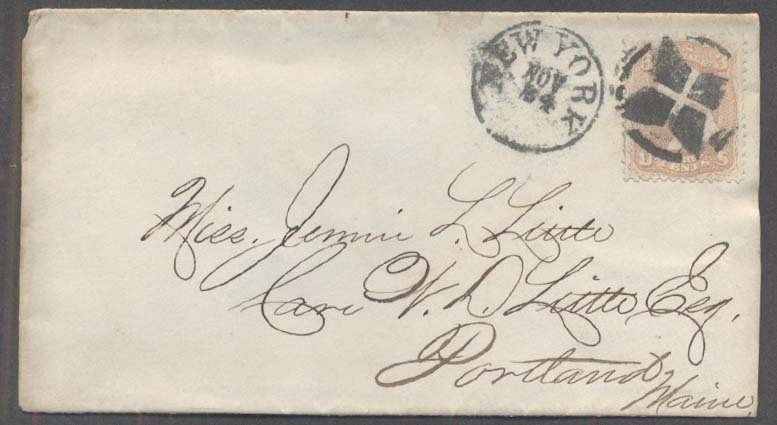 NEW YORK
NOV
24
U CENTS S
Miss. Jennie L. Little
Care W. D. Little Esq.
Portland
Maine